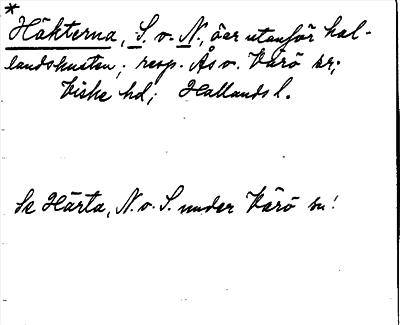 *
Häkterna, S. o. N., öar utanför hal-
landskusten; resp. Ås o. Värö sn;
Viske hd; Hallands l.
Se Härta, N. o. S. under Värö sn!